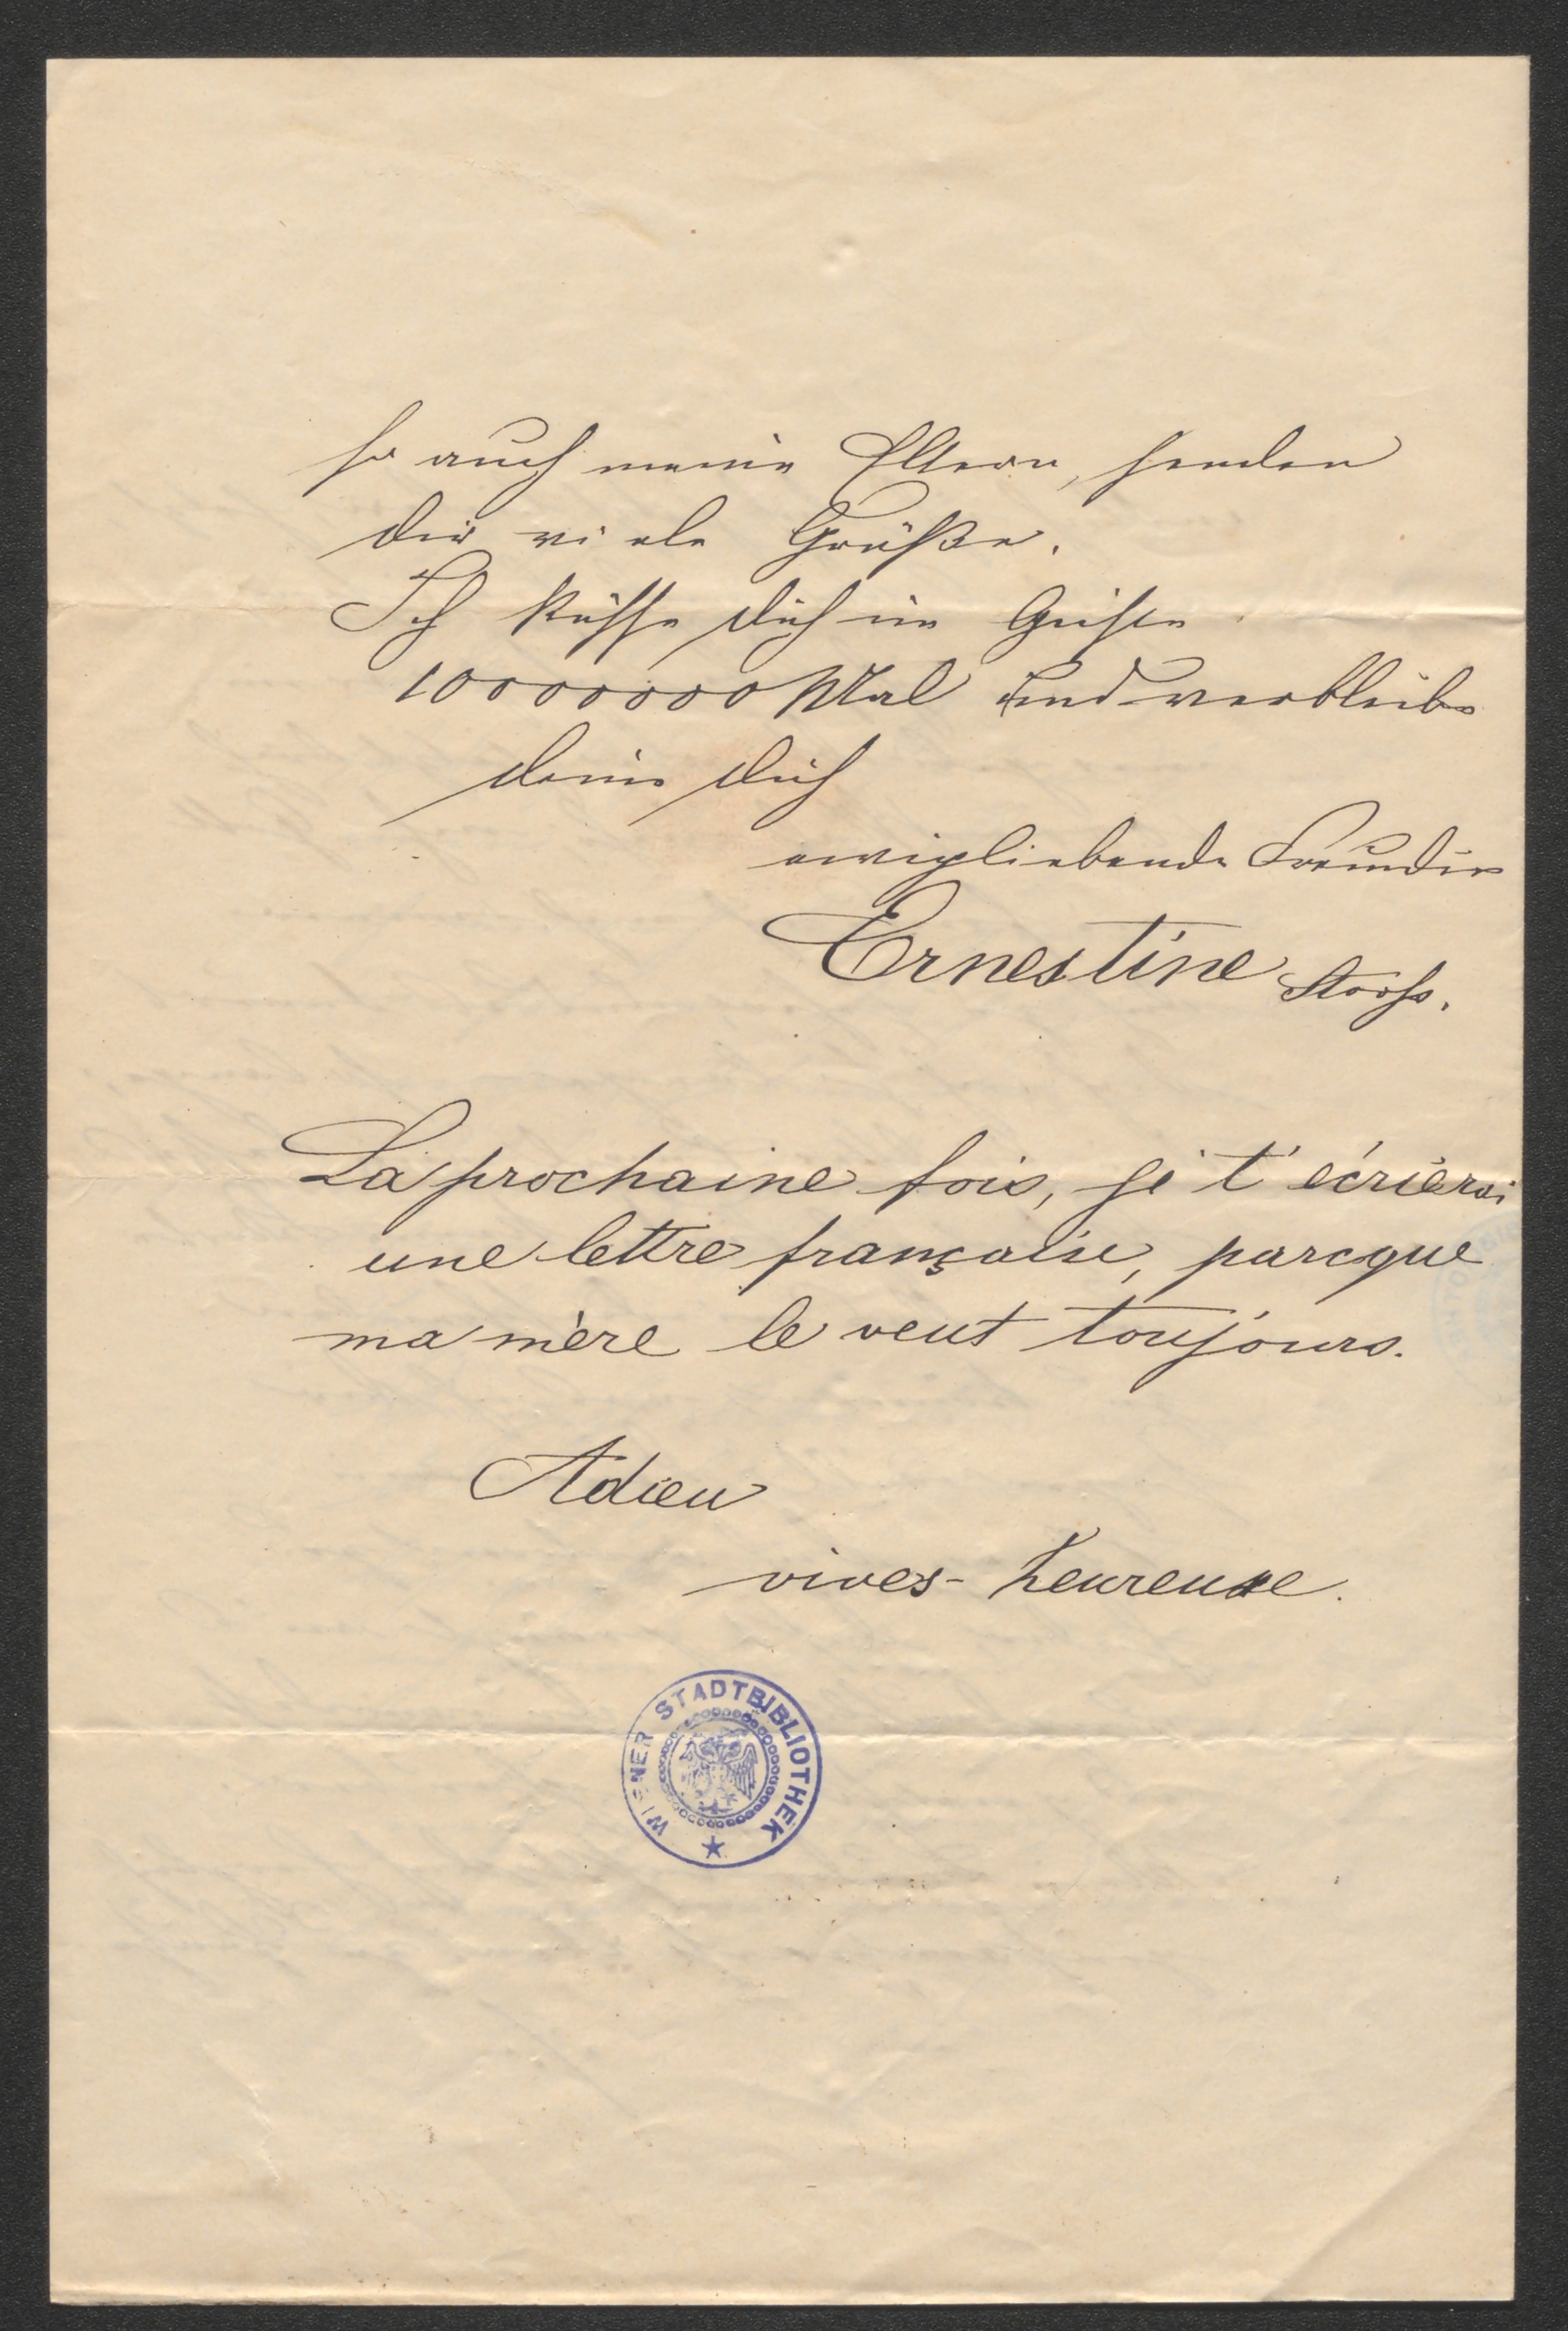 so auch meine Eltern, senden
dir viele Grüße.
Ich küsse dich im Geiste
10000000 Mal und verbleibe
deine dich
ewigliebende Freundin
Ernestine
La prochaine fois, je t'écrierai
une lettre française, parcque
ma mère le veut toujours.
Adieu
vives-heureuse.
WIENER STADTBIBLIOTHEK